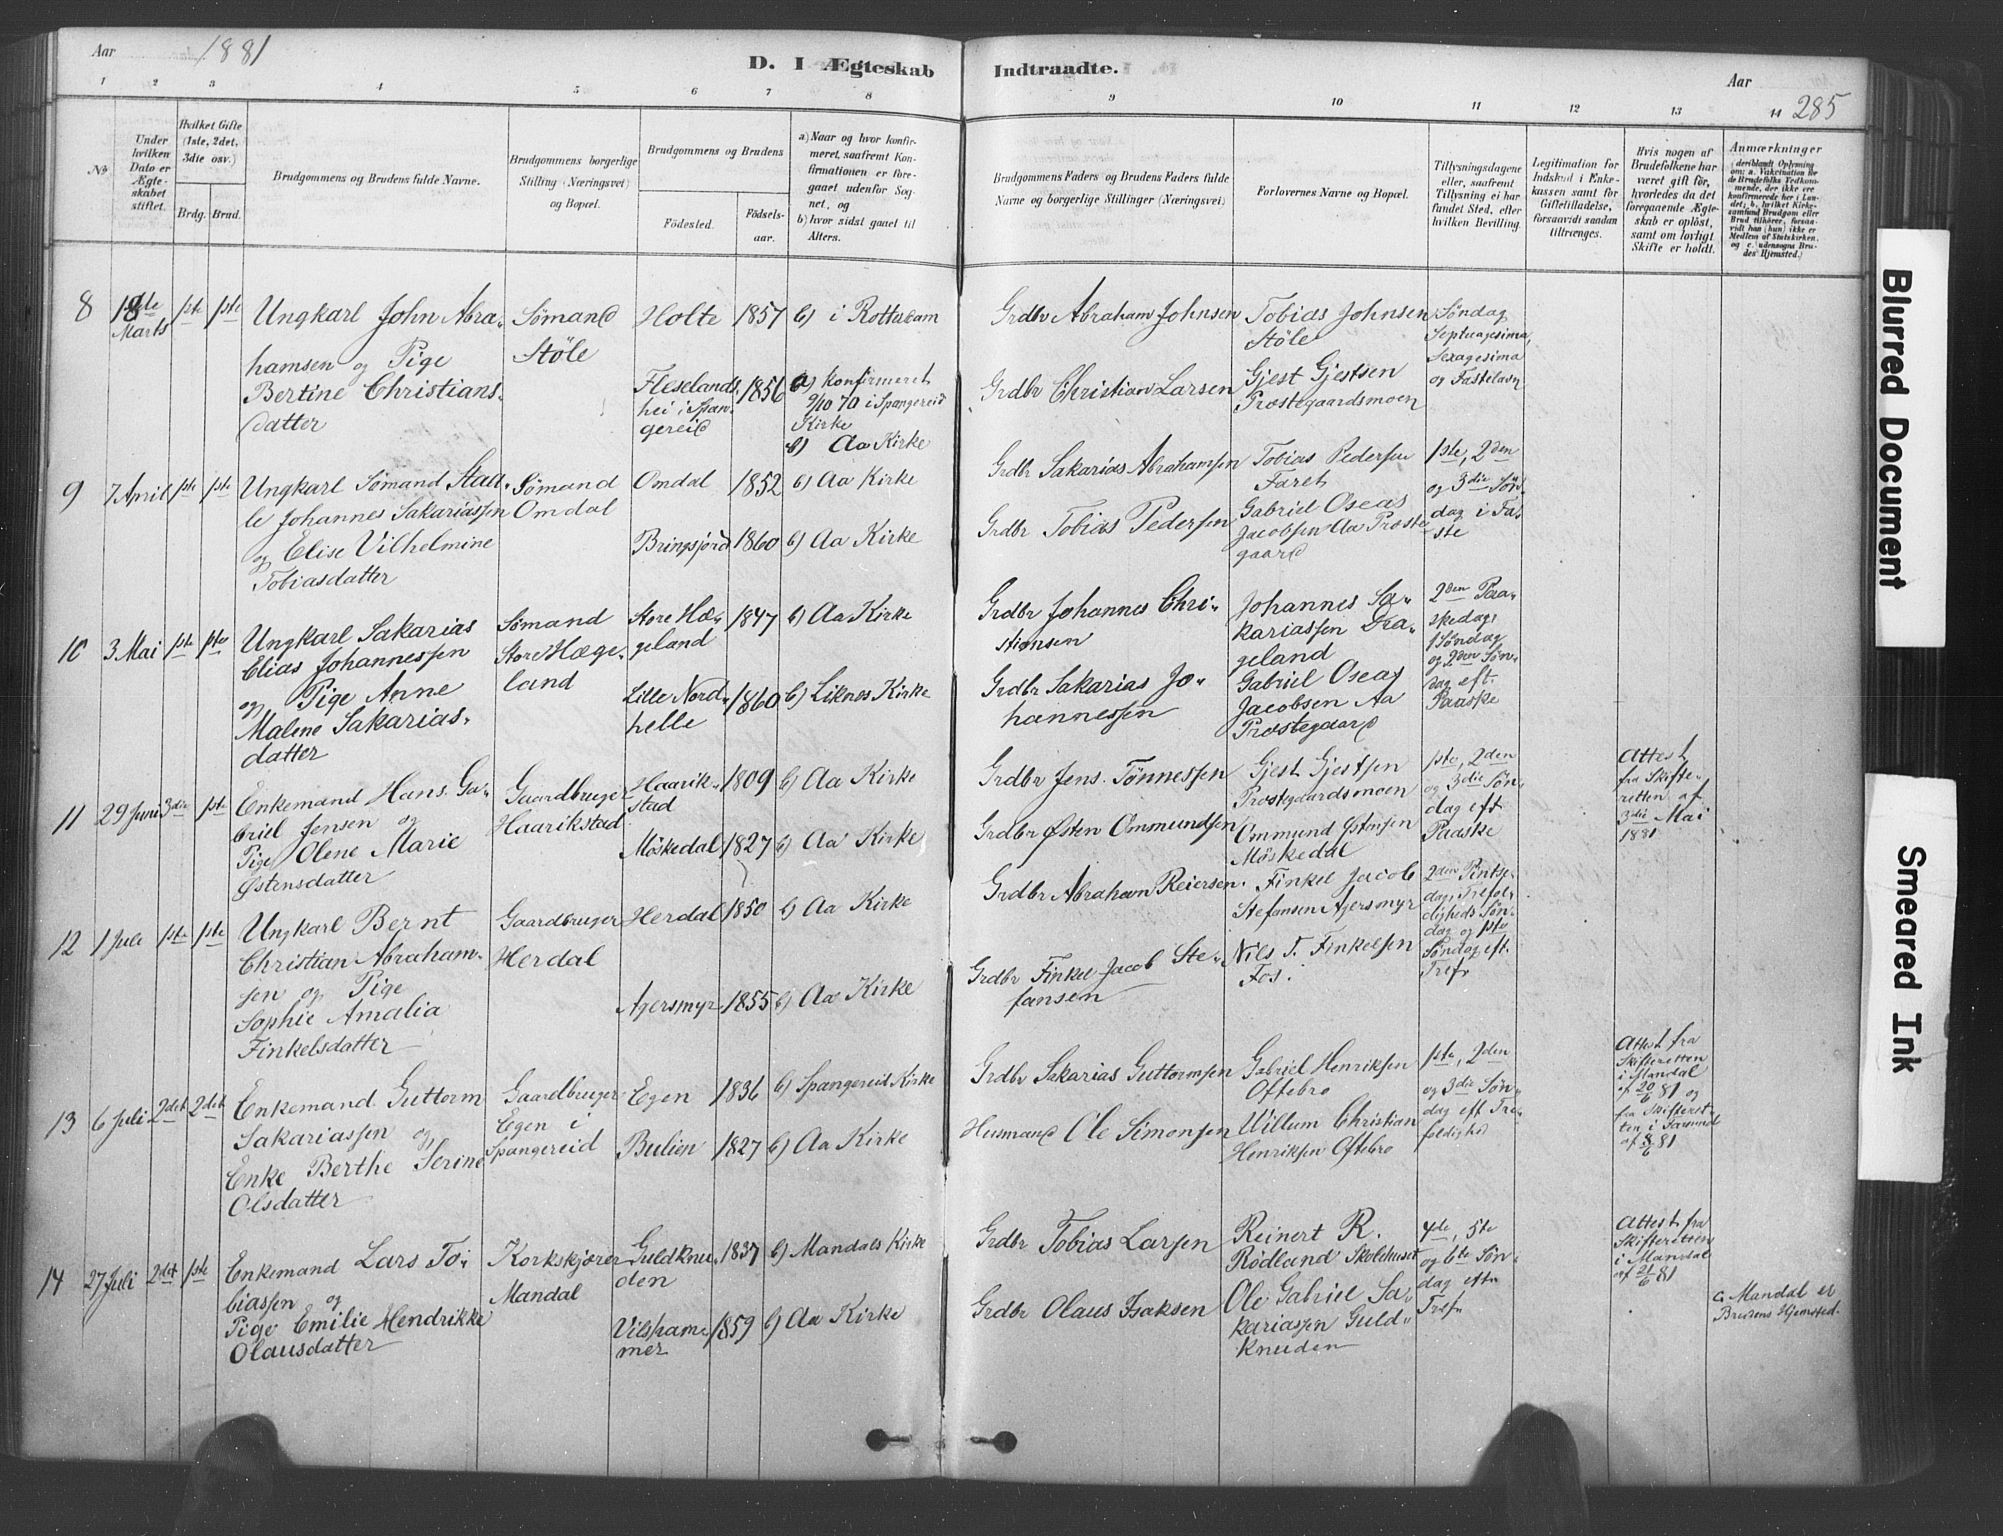 Aar 1881
D. I Ægteskab Indtraadte.
Aar
285
1 2 3 4 5 6 7 8 9 10 11 12 13 14
№
Under hvilken Dato er Ægteskabet stiftet.
Hvilket Gifte (1ste, 2det, 3die osv.)
Brdg. Brud.
Brudgommens og Brudens fulde Navne.
Brudgommens borgerlige Stilling (Næringsvei) og Bopæl.
Brudgommens og Brudens
Fødested.
Fødselsaar.
a) Naar og hvor konfirmeret, saafremt Konfirmationen er foregaaet udenfor Sognet, og
b) hvor sidst gaaet til Alters.
Brudgommens Faders og Brudens Faders fulde Navne og borgerlige Stillinger (Næringsvei)
Forlovernes Navne og Bopæl.
Tillysningsdagene eller, saafremt Tillysning ei har fundet Sted, efter hvilken Bevilling.
Legitimation for Indskud i Enkekassen samt for Giftetilladelse, forsaavidt saadan tiltrænges.
Hvis nogen af Brudefolkene har været gift før, hvorledes da det foregaaende Ægteskab er opløst, samt om lovligt Skifte er holdt.
Anmærkninger
(deriblandt Oplysning om: a. Vakcination for de Brudefolks Vedkommende, der ikke ere konfirmerede her i Landet; b. hvilket Kirkesamfund Brudgom eller Brud tilhører, forsaavidt han (hun) ikke er Medlem af Statskirken, og c. udensogns Brudes Hjemsted.)
8 18de Marts 1ste 1ste
Ungkarl John Abra-
hamsen og Pige
Bertine Christians-
datter
Sømand
Støle
Holte 1857 b) i Rotterdam
Fleselands-
hei i Span-
gereid
1856
a) Konfirmeret
9/10 70 i Spangereid
Kirke
b) Aa Kirke
Grdbr Abraham Johnsen
Grdbr Christian Larsen
Tobias Johnsen
Støle
Gjest Gjestsen
Præstegaardsmoen
Søndag
Septuagesima,
Sexagesima
og Fastelavn
9 7 April 1ste 1ste
Ungkarl Sømand Staal-
le Johannes Sakariassen
og Elise Vilhelmine
Tobiasdatter
Sømand
Omdal
Omdal 1852 b) Aa Kirke
Bringsjord 1860 b) Aa Kirke
Grdbr Sakarias Abrahamsen
Grdbr Tobias Pedersen
Tobias Pedersen
Faret
Gabriel Oseas
Jacobsen Aa Præste
gaard
1ste, 2den
og 3die Søn-
dag i Fa-
ste
10 3 Mai 1ste 1ste
Ungkarl Sakarias
Elias Johannessen
og Pige Anne
Malene Sakarias-
datter
Sømand
Store Hæge-
land
Store Hæ-
geland
1847 b) Aa Kirke
Lille Nord-
helle
1860 b) Liknes Kirke
Grdbr Johannes Chri-
stiansen
Grdbr Sakarias Jo-
hannessen
Johannes Sa-
kariassen Dra-
geland
Gabriel Oseas
Jacobsen Aa
Præstegaard
2den Paa-
skedag,
1 Søndag
og 2den Søn-
dag eft.
Paaske
11 29 Juni 3die 1ste
Enkemand Hans Ga-
briel Jensen og
Pige Olene Marie
Østensdatter
Gaardbruger
Haarikstad
Haarik-
stad
1809 b) Aa Kirke
Møskedal 1827 b) Aa Kirke
Grdbr Jens Tønnessen
Grdbr Østen Ommundsen
Gjest Gjestsen
Præstegaardsmoen
Ommund Østensen
Møskedal
1ste, 2den
og 3die Søn-
dag eft
Paaske
Attest
fra Skifte-
retten af
3die Mai
1881
12 1 Juli 1ste 1ste
Ungkarl Bernt
Christian Abraham-
sen og Pige
Sophie Amalia
Finkelsdatter
Gaardbruger
Herdal
Herdal 1850 b) Aa Kirke
Agersmyr 1855 b) Aa Kirke
Grdbr Abraham Reiersen
Grdbr Finkel Jacob Ste-
fansen
Finkel Jacob
Stefansen Agersmyr
Nils T. Finkelsen
Fos
2den Pintse-
dag, Trefol-
digheds Søn-
dag og 1ste
Søndag eft.
Tref.
13 6 Juli 2det 2det
Enkemand Guttorm
Sakariassen og
Enke Berthe Serine
Olsdatter
Gaardbruger
Egen i
Spangereid
Egen 1836 b) Spangereid Kirke
Bulien 1827 b) Aa Kirke
Grdbr Sakarias Guttormsen
Husmand Ole Simonsen
Gabriel Henriksen
Oftebro
Willum Christian
Henriksen Oftebro
1ste, 2den
og 3die Søn-
dag eft Tre-
foldighed
Attest fra
Skifteretten
i Mandal
af 20/6 81 og
fra Skifteret-
ten i Farsund
af 8/6 81
14 27 Juli 2det 1ste
Enkemand Lars To-
biassen og
Pige Emilie Hendrikke
Olausdatter
Korkskjærer
Mandal
Guldknu-
den
1837 b) Mandals Kirke
Vilsham-
mer
1859 b) Aa Kirke
Grdbr Tobias Larsen
Grdbr Olaus Isaksen
Reinert R.
Rødland Skolehuset
Ole Gabriel Sa-
kariassen Guld-
knuden
4de, 5te
og 6te Søn-
dag eftr
Tref.
Attest fra
Skifteretten
i Mandal
af 21/6 81
c. Mandal er
Brudens Hjemsted.
Blurred Document
Smeared Ink